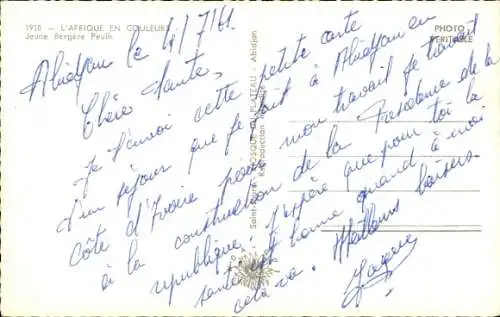 1910 - L'AFRIQUE EN COULEURS
Jeune Bergère Peulh.
PHOTO
VÉRITABLE
Abidjan le 4/7/61.
Chère tante,
Je t'envoi cette petite carte
d'un séjour que je fait à Abidjan en
Côte d'Ivoire pour mon travail je travail
à la construction de la Présidence de la
république. J'espère que pour toi la
santé est bonne quand à moi
cela va. Meilleurs baisers.
KIOSQUE DU PLATEAU - Abidjan
Reproduction interdite